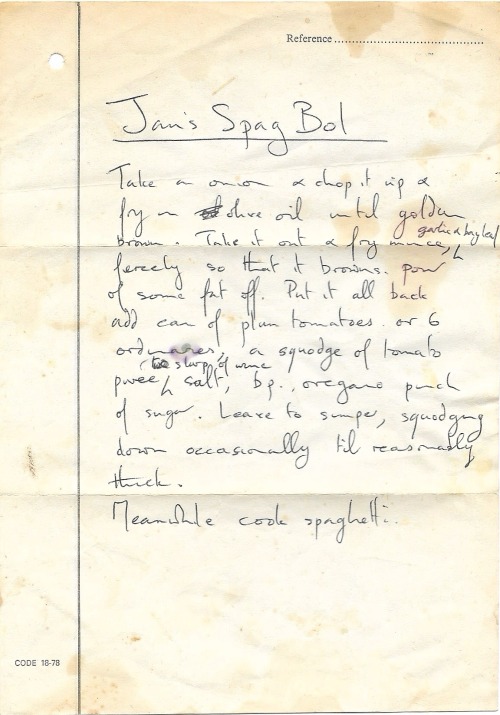 Reference
Jan's Spag Bol
Take an onion & chop it up &
fry in olive oil until golden
garlic & bay leaf
brown. Take it out & fry mince,
fercely so that it browns. pour
of some fat off. Put it all back
add can of plum tomatoes. or 6
ordinaries, a squodge of tomato
slurp of wine
puree, salt, b.p., oregano pinch
of sugar. Leave to simper, squodging
down occasionally til reasonably
thick.
Meanwhile cook spaghetti.
CODE 18-78